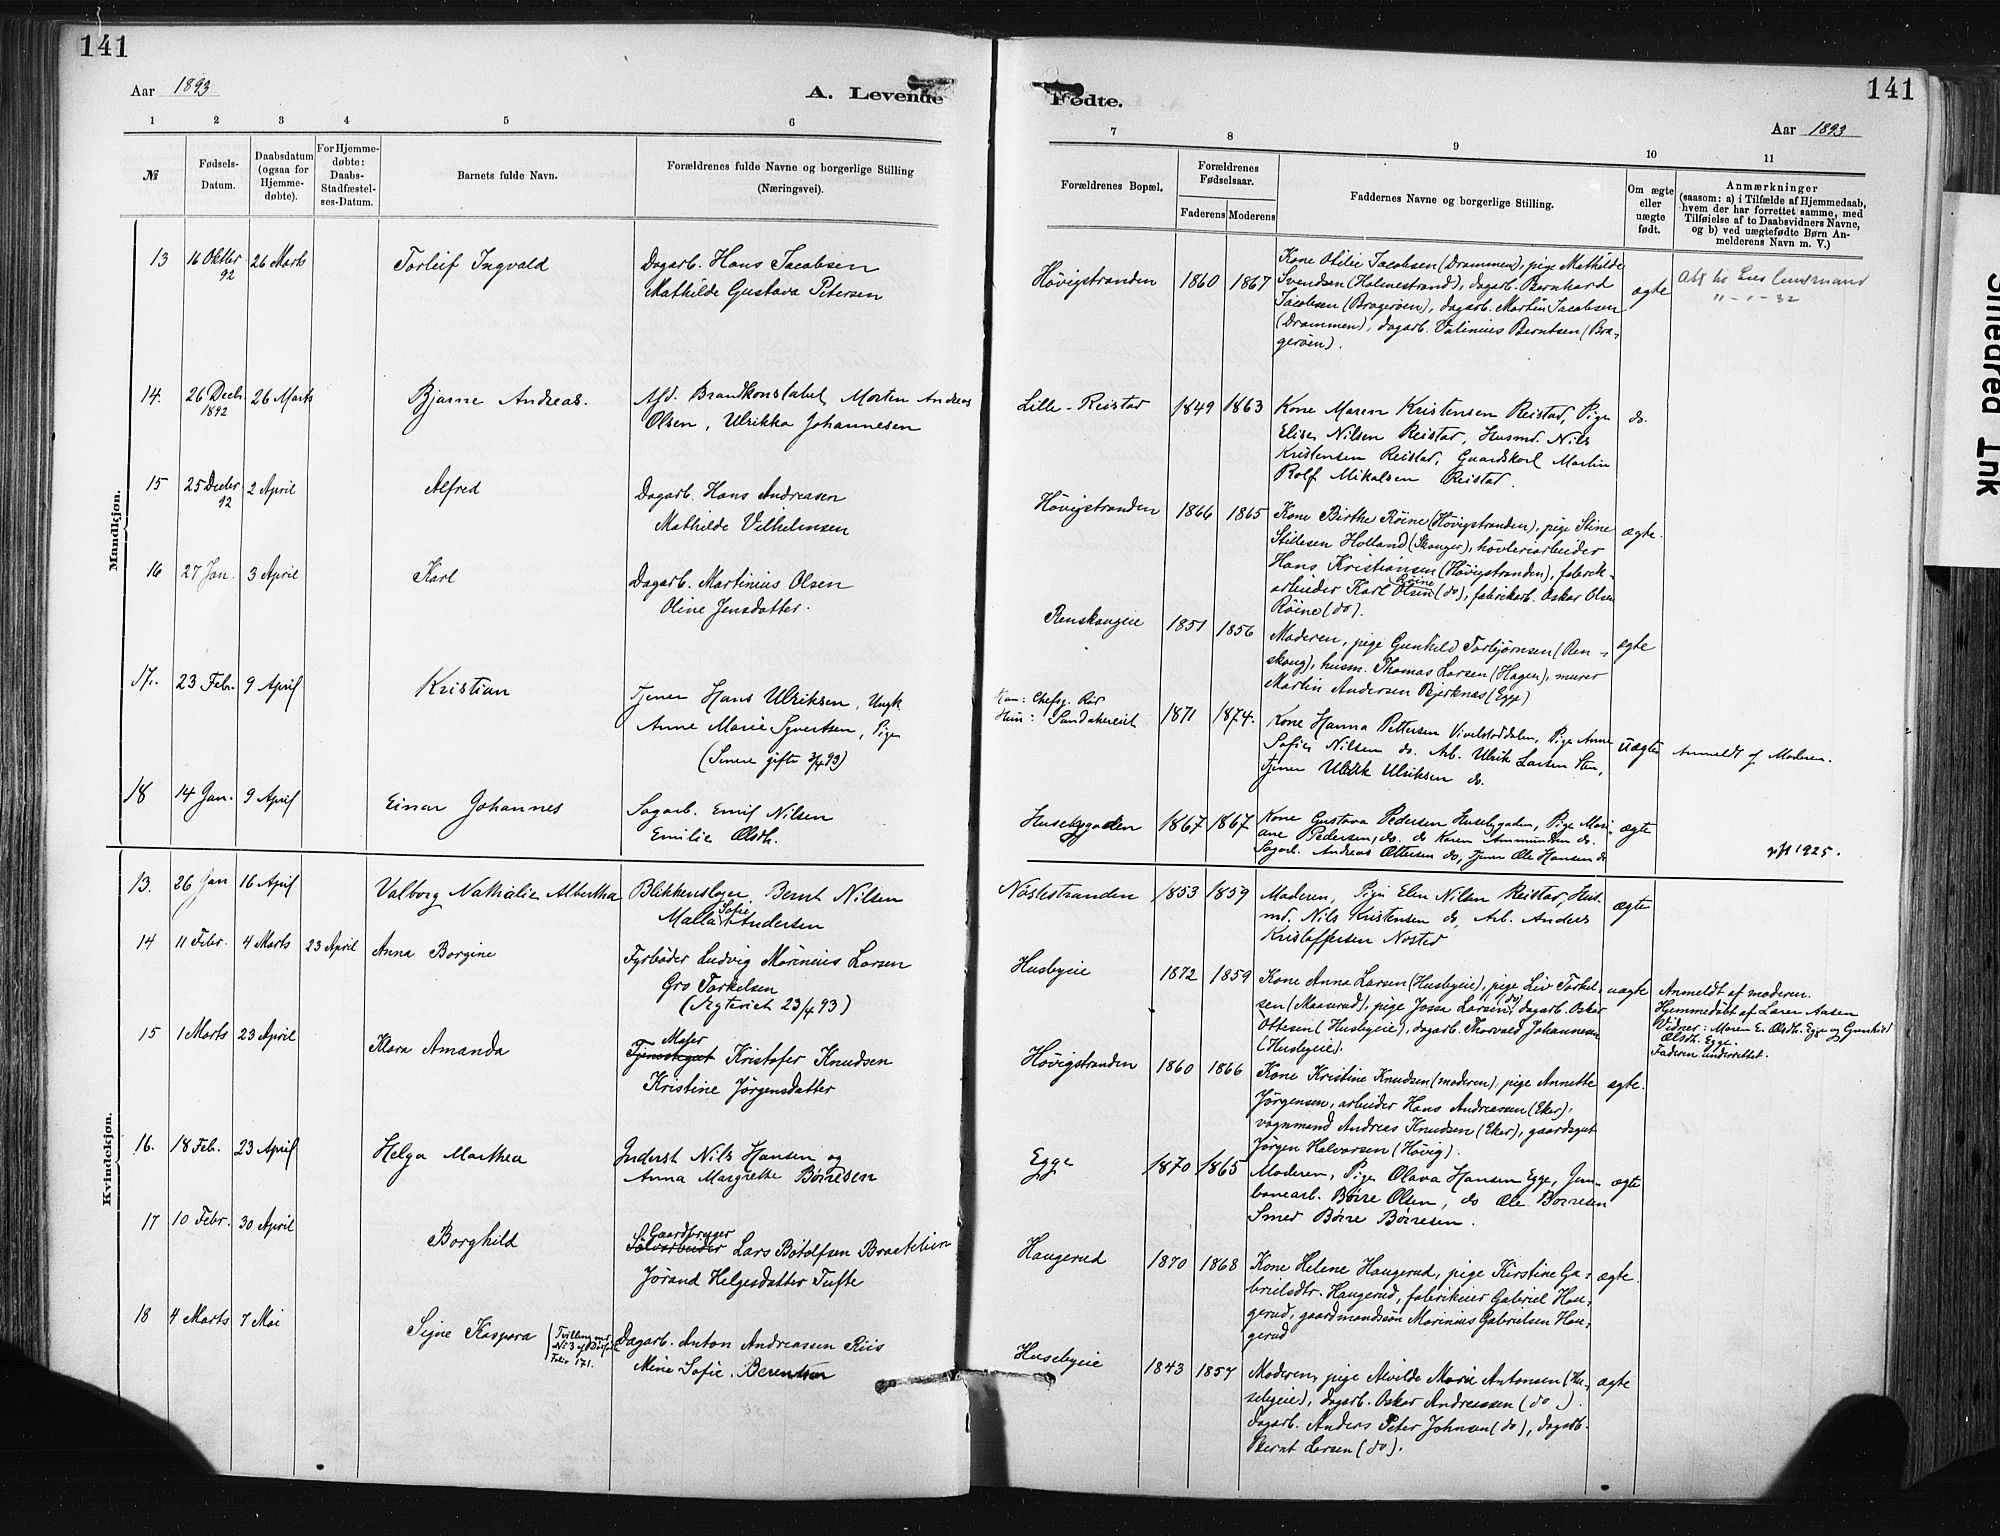 141
Aar 1893
A. Levende
1 2 3 4 5 6
№
Fødsels-Datum.
Daabsdatum (ogsaa for Hjemmedøbte).
For Hjemmedøbte: Daabs-Stadfæstelses-Datum.
Barnets fulde Navn.
Forældrenes fulde Navne og borgerlige Stilling
(Næringsvei).
Mandkjøn.
13 16 Oktbr 92 26 Marts Torleif Ingvald Dagarb. Hans Jacobsen
Mathilde Gustava Petersen
14. 26 Decbr. 1892 26 Marts Bjarne Andreas. Afd. Brandkonstabel Morten Andreas
Olsen, Ulrikka Johannesen
15 25 Decbr 92 2 April Alfred Dagarb. Hans Andreasen
Mathilde Vilhelmsen
16 27 Jan. 3 April Karl Dagarb. Martinius Olsen
Oline Jensdatter.
17. 23 Feb. 9 April Kristian Tjener Hans Ulriksen, Ungk.
Anne Marie Syvertsen, Pige
(Senere gifte 3/4 93)
18 14 Jan. 9 April Einar Johannes Sagarb. Emil Nilsen
Emilie Olsdt.
Kvindekjøn.
13. 26 Jan 16 April Valborg Nathalie Albertha Blikkenslager Bernt Nilsen
Malla Sofie Andersen
14 11 Febr. 4 Marts 23 April Anna Borgine Fyrbøder Ludvig Marinius Larsen
Gro Torkelsen
(Ægteviet 23/4 93)
15 1 Marts 23 April Klara Amanda Maser
Tjenestegut Kristofer Knudsen
Kristine Jørgensdatter
16. 18 Feb. 23 April Helga Marthea Inderst Nils Hansen og
Anna Margrethe Börresen
17 10 Febr. 30 April Borghild S. Gaardbruger
Sølvarbeider Lars Botolfsen Braatelien
Jørand Helgesdatter Tufte
18 4 Marts 7 Mai Signe Kaspara (Tvilling med No 3 af Folio 171. Dagarb. Anton Andreassen Riis
Mina Sofie Berentsen
141
Fødte.
Aar 1893
7 8 9 10 11
Forældrenes Bopæl.
Forældrenes Fødselsaar.
Faderens Moderens
Faddernes Navne og borgerlige Stilling.
Om ægte eller uægte født.
Anmærkninger
(saasom: a) i Tilfælde af Hjemmedaab, hvem der har forrettet samme, med Tilføielse af to Daabsvidners Navne, og b) ved uægtefødte Børn Anmelderens Navn m. V.)
Høvigstranden 1860 1867 Kone Otilie Jacobsen (Drammen), pige Mathilde
Svendsen (Holmestrand), dagarb. Bernhard
Jacobsen (Bragerøen), dagarb. Martin Jacobsen
(Drammen), dagarb. Valinius Berntsen (Bra-
gerøen).
ægte
11-1-32
Lille-Reistad 1849 1863 Kone Maren Kristensen Reistad, Pige
Elise Nilsen Reistad, Husmd. Nils
Kristensen Reistad, Gaardskarl Martin
Rolf Mikalsen Reistad.
do.
Høvigstranden 1866 1865 Kone Birthe Röine (Høvigstranden), pige Stine
Stillesen Holland (Skauger), høvleriarbeider
Hans Kristiansen (Høvigstranden), fabrik-
arbeider Karl Olsen Røine (do), fabrikarb. Oskar Olsen
Röine (do).
ægte.
Renskougeie 1851 1856 Moderen, pige Gunhild Torbjørnsen (Ren-
skoug), husm. Thomas Larsen (Hagen), murer
Martin Andersen Bjerknæs (Egge)
ægte
Han: Chefsg. Rör
Hun: Sandakereiet 1871 1874. Kone Hanna Pettersen Vivelstaddalen, Pige Anne
Sofie Nilsen do. Arb. Ulrik Larsen Sten,
Tjener Ulrik Ulriksen do.
uægte Anmeldt af Moderen.
Husebygaden 1867 1867 Kone Gustava Pedersen Husebygaden, Pige Mari-
ane Pedersen, do. do Karen Ammundsen do.
Sagarb. Andreas Ottersen do, Tjener Ole Hansen do
ægte
1925.
Nøstestranden 1853 1859 Moderen, Pige Elen Nilsen Reistad, Hus-
md. Nils Kristensen do, Arb. Anders
Kristoffersen Nøsted
ægte
Husbyeie 1872 1859 Kone Anna Larsen (Husbyeie), pige Liv Torkel-
sen (Maaserud), pige Josa Larsen (do), dagarb. Oskar
Ottesen (Husbyeie), dagarb. Thorvald Johannesen
(Husbyeie).
uægte Anmeldt af moderen.
Hjemmedøbt af Lærer Aasen
Vidner: Maren E. Olsdt. Egge og Gunhild
Olsdt. Egge.
Faderen underrettet.
Høvigstranden 1860 1866 Kone Kristine Knudsen (moderen), pige Annette
Jørgensen, arbeider Hans Andreassen (Eker),
vognmand Andreas Knudsen (Eker), gaardsgut
Jørgen Halvorsen (Høvig).
ægte.
Egge 1870 1865 Moderen, Pige Olava Hansen Egge, Jern-
banearb. Børre Olsen, do Ole Børresen
Smed Børre Børresen.
ægte
Haugerud 1870 1868 Kone Helene Haugerud, pige Kirstine Ga-
brielsdtr. Haugerud, fabrikeier Gabriel Hau-
gerud, gaardmandssøn Marinius Gabrielsen Hau-
gerud
ægte.
Husebyeie 1843 1857 Moderen, pige Alvilde Marie Antonsen (Hu-
sebyeie), dagarb. Oskar Andreassen (do).
dagarb. Anders Peter Johnsen (do), dagarb.
Bernt Larsen (do).
ægte
Smeared Ink